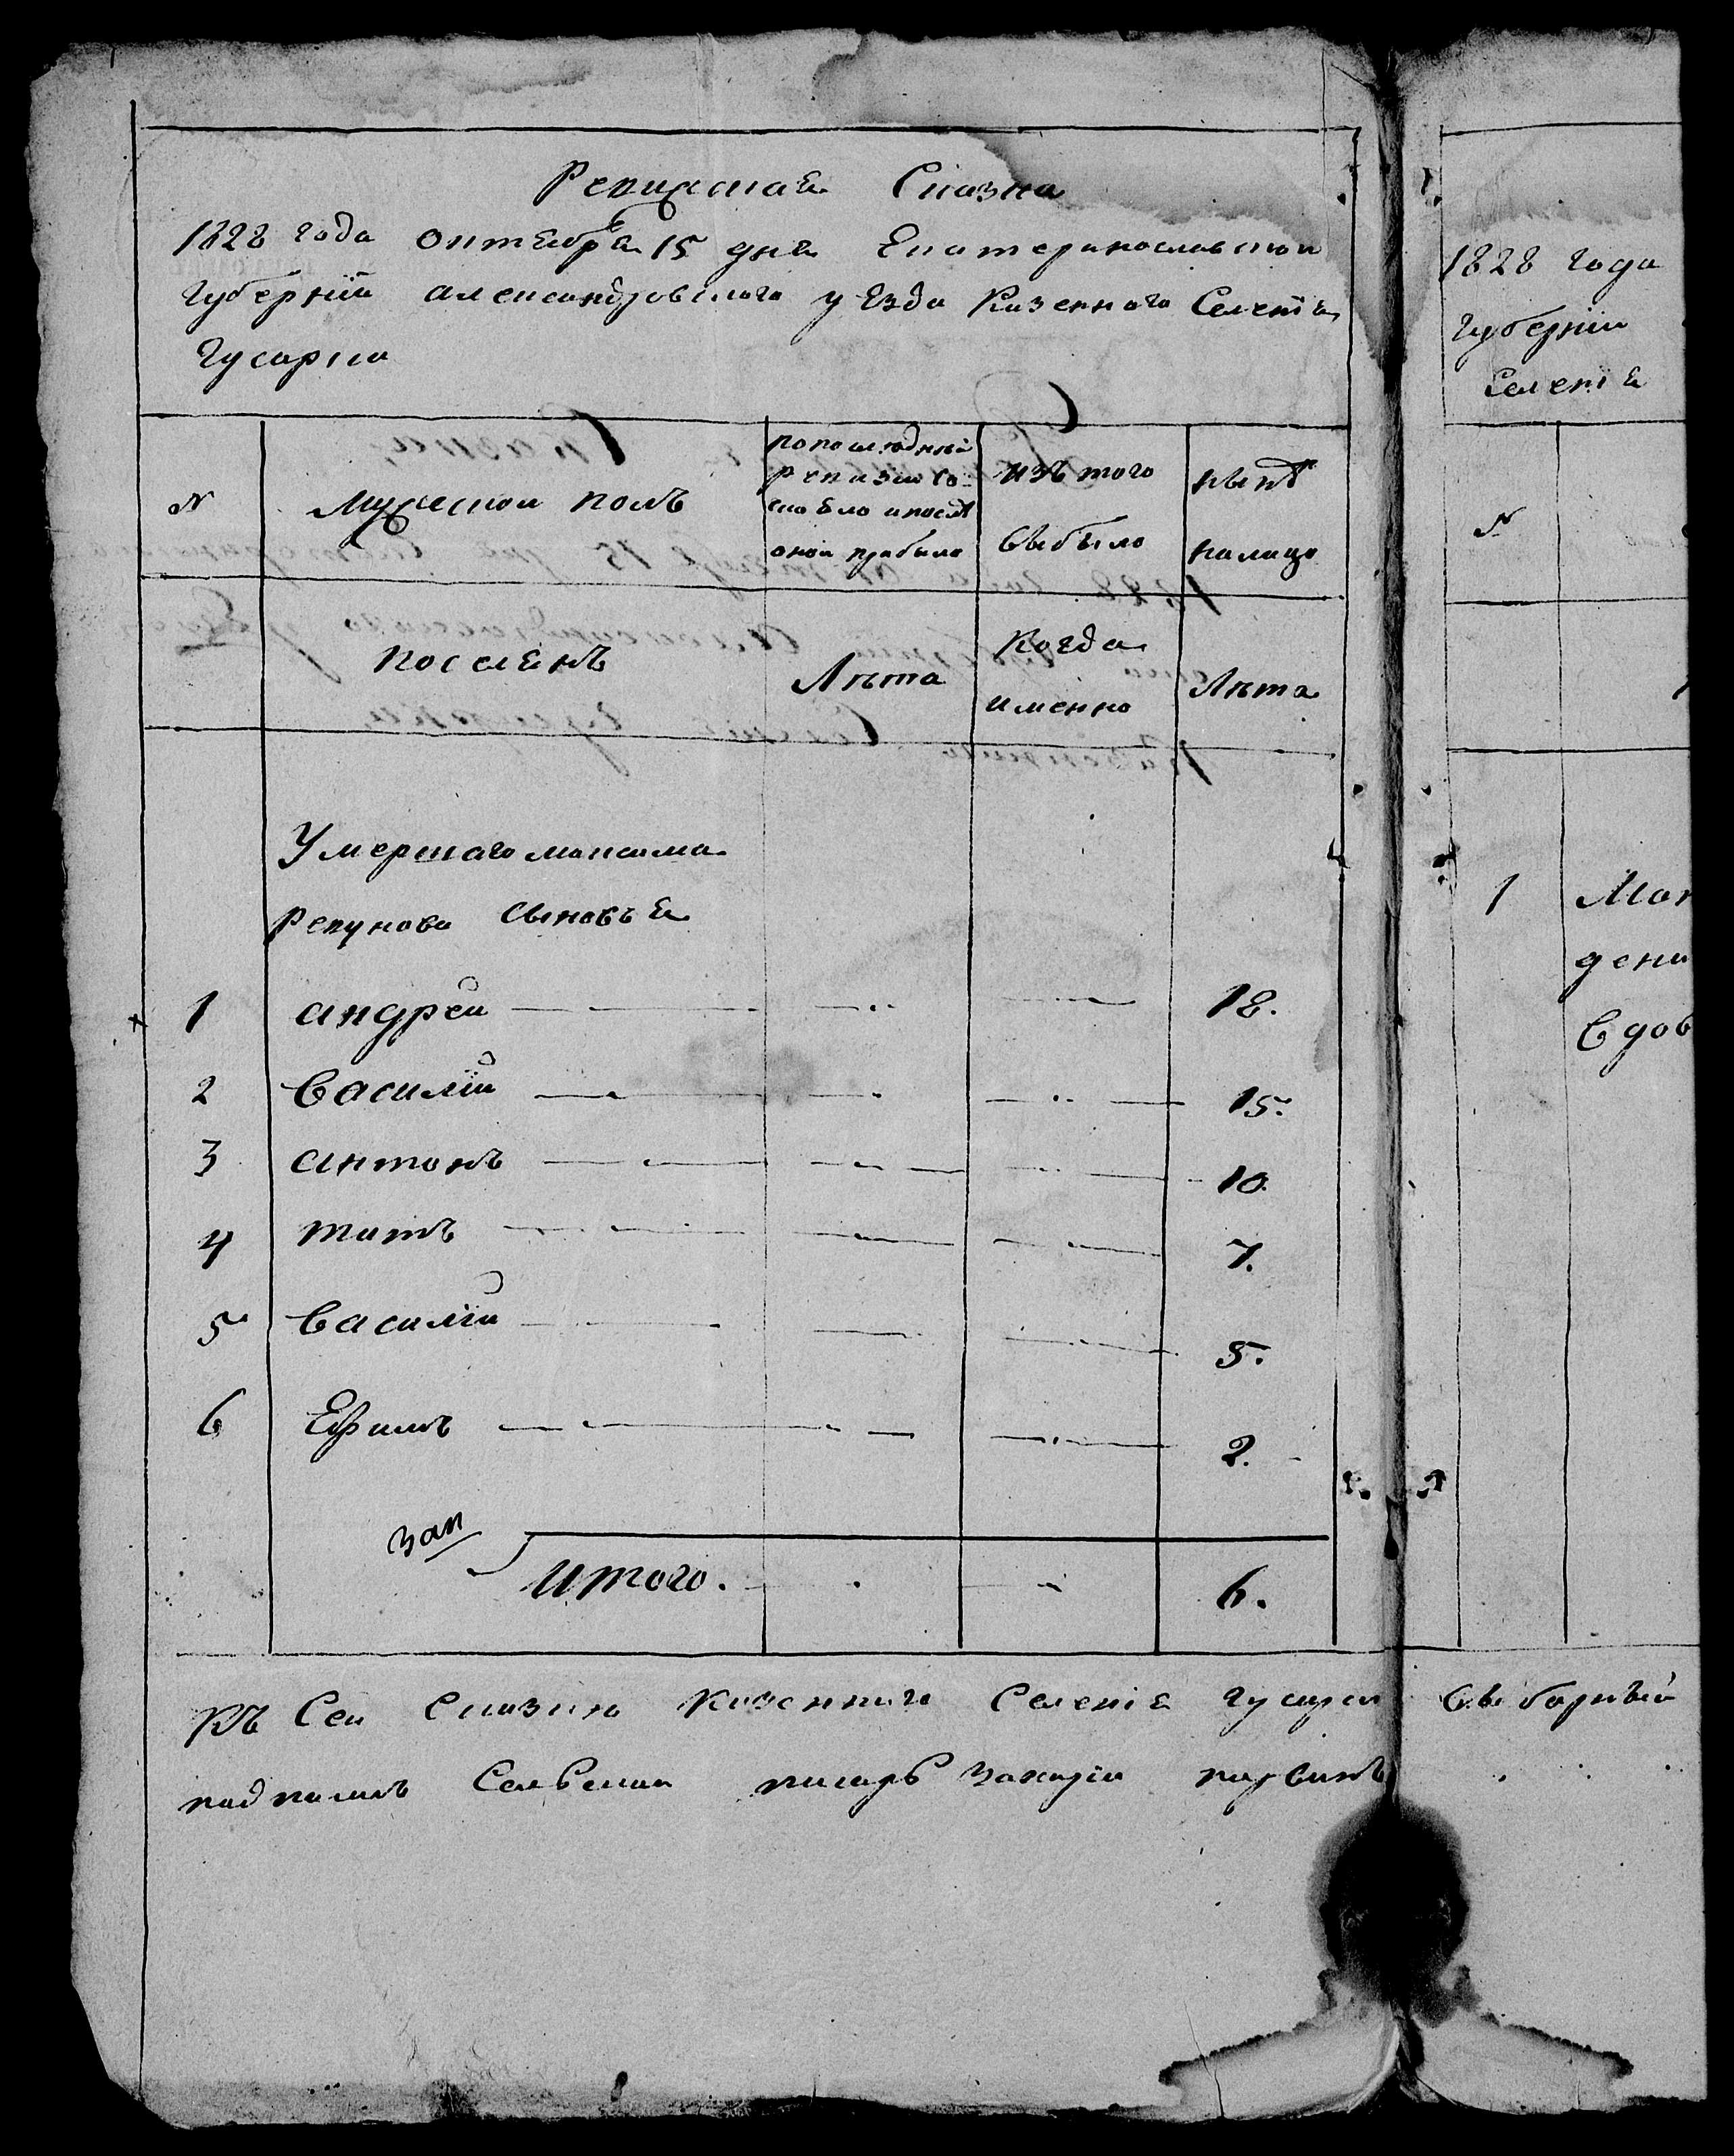 Ревижская Сказка
1828 года октября 15 дня Екатеринославской
Губернїи александровского уезда Казенного Селенїя
Гусарки
№
мужеской полъ
по последней
ревизии со-
стояло и после
оной прибыло
изъ того
выбыло
ныне
налицо
поселянъ
Лѣта
Когда
именно
Лѣта
Умершаго максима
Репунова сыновья
1 андрей 18.
2 Василїй 15.
3 антонъ 10.
4 титъ 7.
5 Василїй 5.
6 Ефимъ 2.
зак
Итого. 6.
Къ Сей Сказки Казенного Селенїя гусарки
подписалъ Сельской писарь
1828 года
Губернїи
Селенїя
№
1
Мак
дени
вдов
Выборный